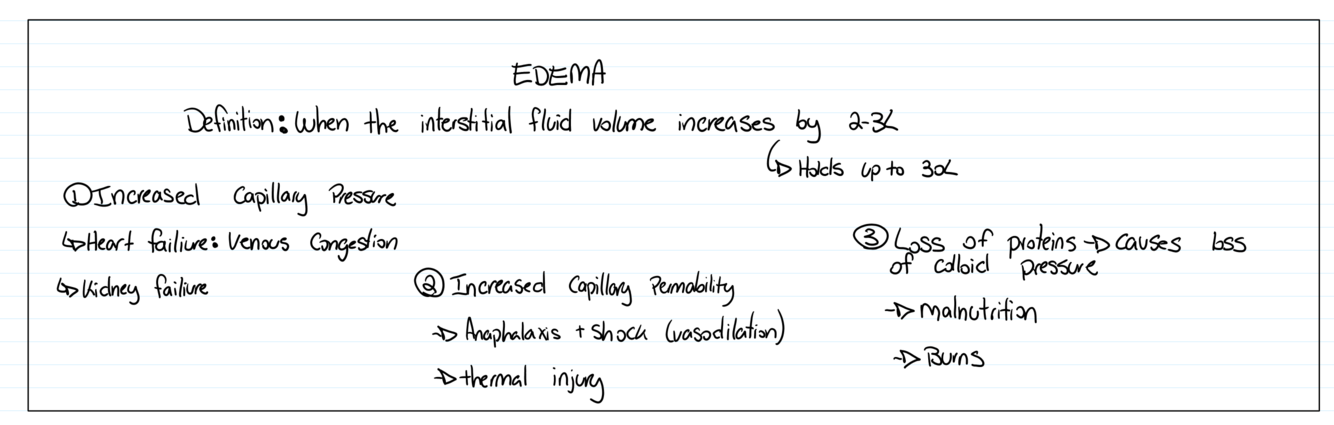 EDEMA
Definition: When the interstitial fluid volume increases by 2-3L
↳ Holds up to 30L
① Increased Capillary Pressure
↳ Heart failiure: Venous Congestion
↳ Kidney failiure
② Increased Capillary Permability
→ Anaphalaxis + shock (vasodilation)
→ thermal injury
③ Loss of proteins → causes loss
of colloid pressure
→ malnutrition
→ Burns